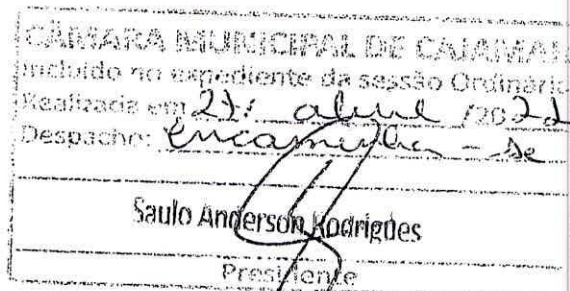 CÂMARA MUNICIPAL DE CAJAMAR
Incluído no expediente da sessão Ordinária
Realizada em abril /20
Despacho: Encaminhe-se
Saulo Anderson Rodrigues
Presidente